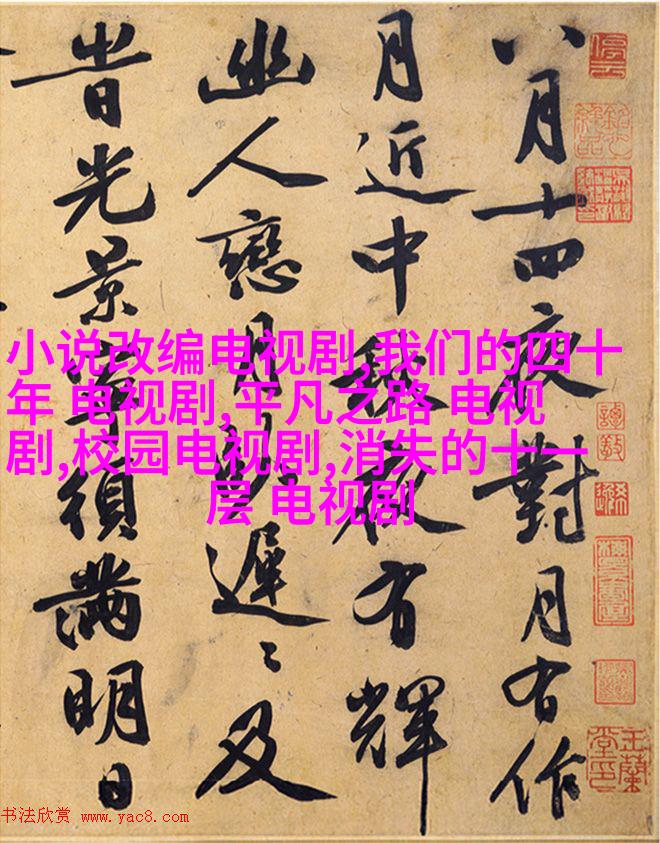 八月十四夜對月有作
月近中秋有輝
幽人戀月遲〻及
旹光景寧須滿明日
小说改编电视剧,我们的四十
年 电视剧,平凡之路 电视
剧,校园电视剧,消失的十一
层 电视剧
书法欣赏 www.yac8.com